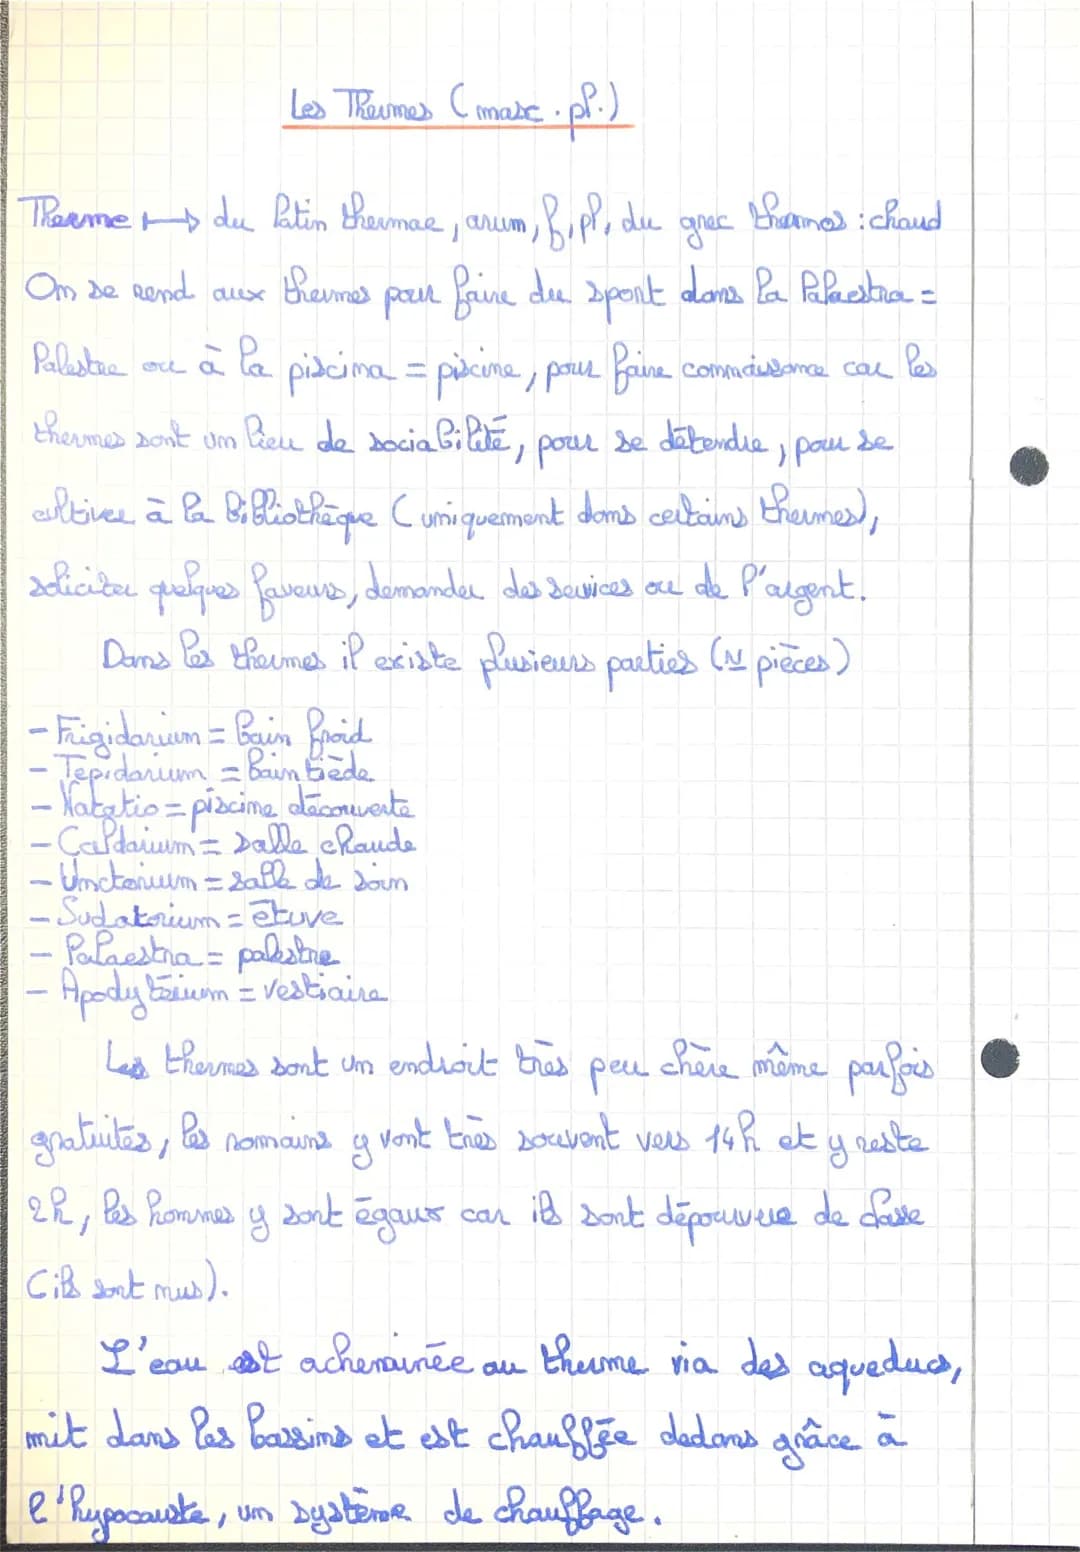 Les Thermes (masc. pl.)
Therme ↦ du latin thermae, arum, f, pl, du grec thermos : chaud
On se rend aux thermes pour faire du sport dans la Palaestra =
Palestre ou à la piscina = piscine, pour faire connaissance car les
thermes sont un lieu de sociabilité, pour se détendre, pour se
cultiver à la bibliothèque (uniquement dans certains thermes),
soliciter quelques faveurs, demander des services ou de l'argent.
Dans les thermes il existe plusieurs parties (≃ pièces)
- Frigidarium = bain froid
- Tepidarium = bain tiède
- Natatio = piscine découverte
- Caldarium = salle chaude
- Unctorium = salle de soin
- Sudatorium = étuve
- Palaestra = palestre
- Apodytérium = vestiaire
Les thermes sont un endroit très peu chère même parfois
gratuités, les romains y vont très souvent vers 14h et y reste
2h, les hommes y sont égaux car ils sont dépourvue de classe
(ils sont nus).
L'eau est acheminée au therme via des aqueducs,
mit dans les bassins et est chauffée dedans grâce à
l'hypocauste, un système de chauffage.